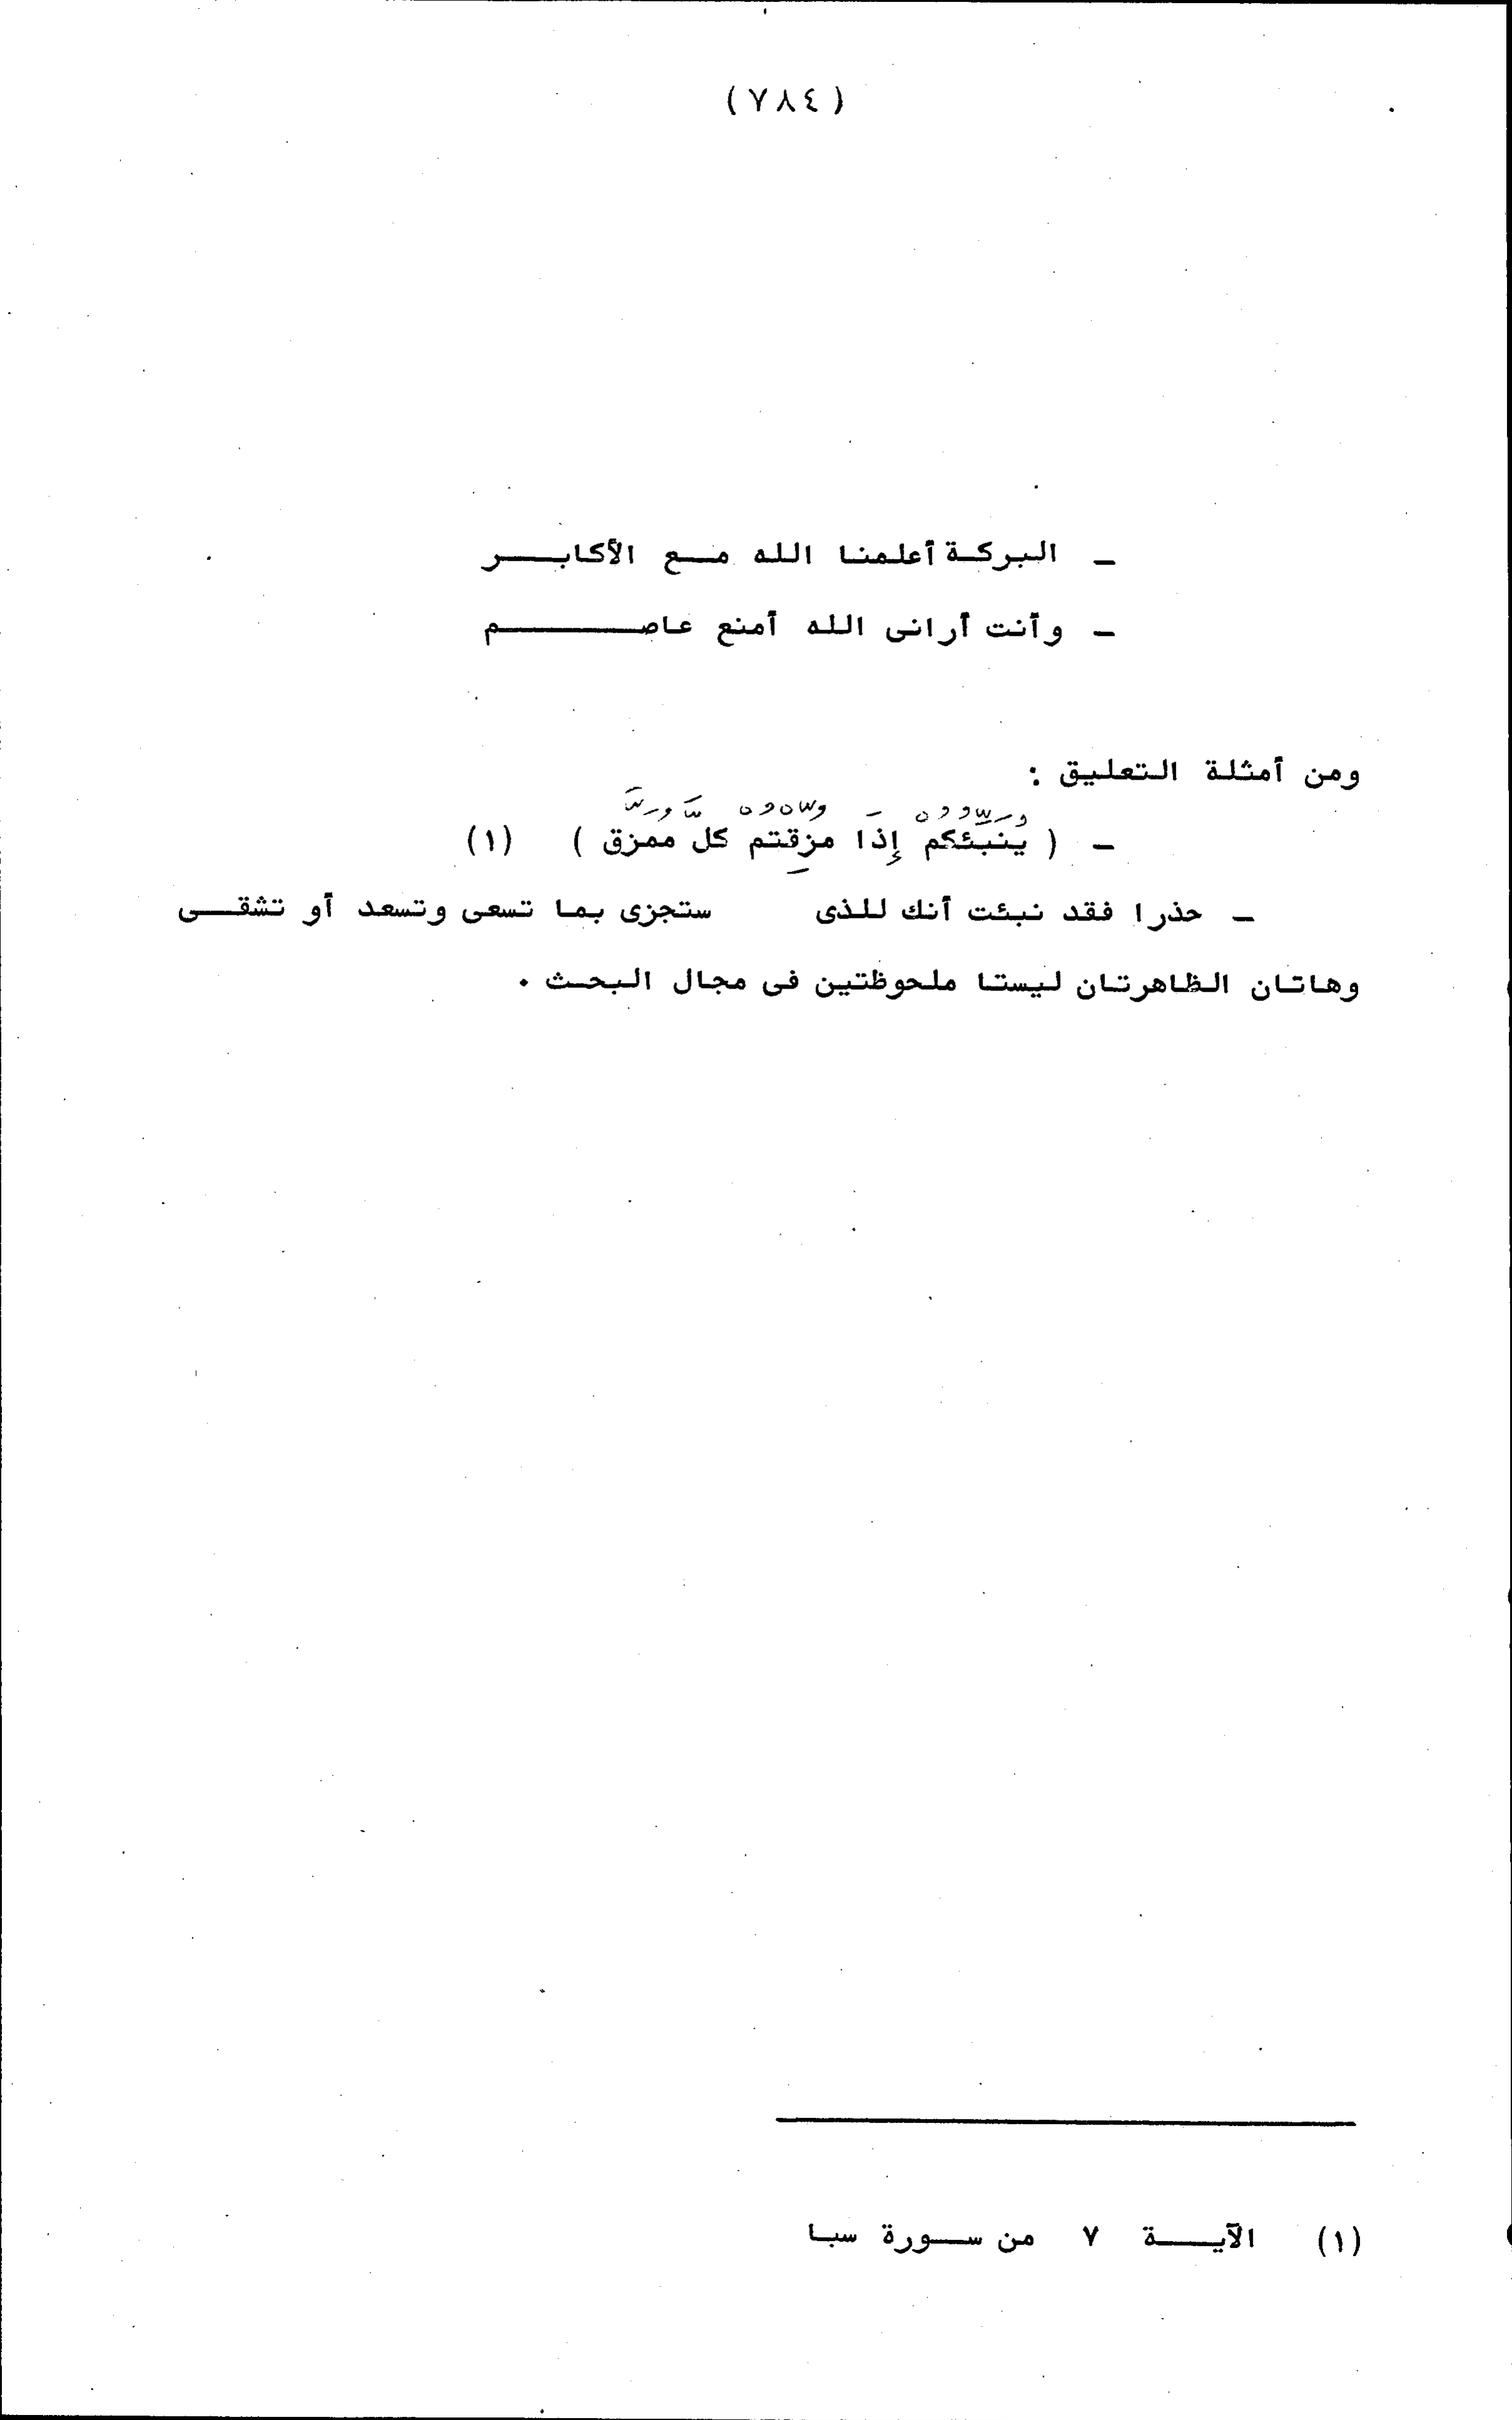 (٧٨٤)
ـ البركة أعلمنا الله مع الأكابر
ـ وأنت أرانى الله أمنع عاصم
ومن أمثلة التعليق :
ـ ( يُنَبِّئُكُمْ إِذَا مُزِّقْتُمْ كُلَّ مُمَزَّقٍ ) (١)
ـ حذرا فقد نبئت أنك للذى ستجزى بما تسعى وتسعد أو تشقى
وهاتان الظاهرتان ليستا ملحوظتين فى مجال البحث .
(١) الآية ٧ من سورة سبا